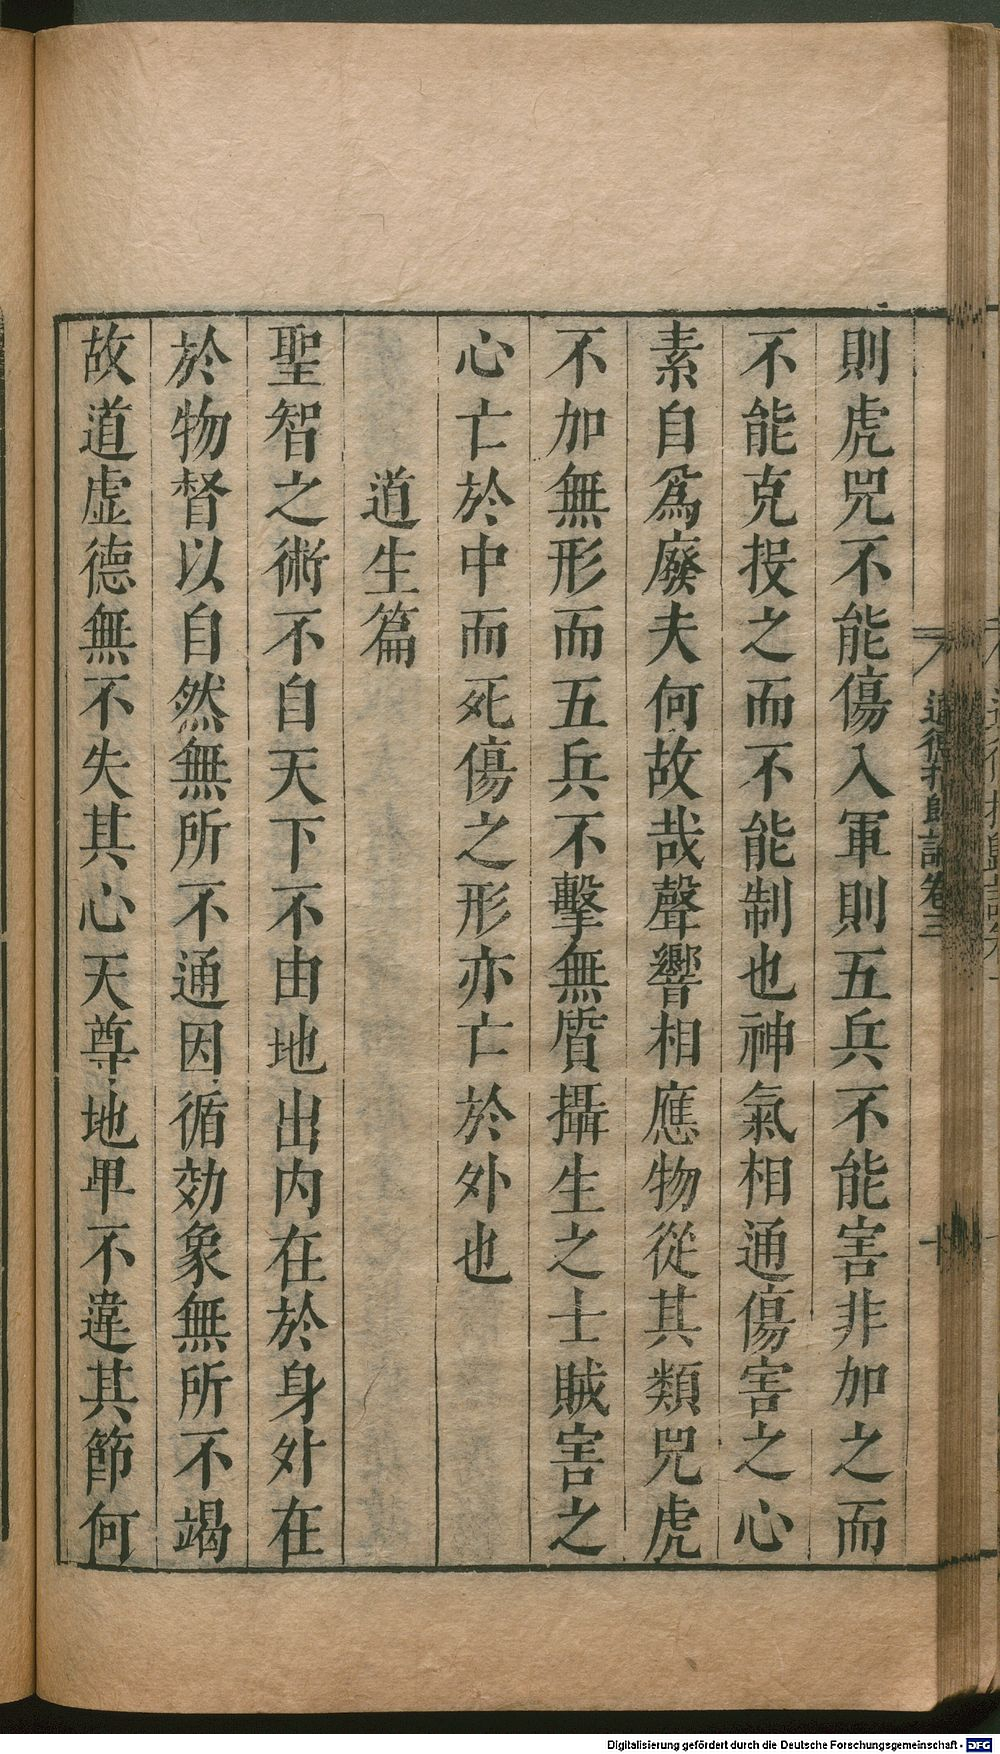 則虎兕不能傷入軍則五兵不能害非加之而
不能克投之而不能制也神氣相通傷害之心
素自爲廢夫何故哉聲響相應物從其類兕虎
不加無形而五兵不擊無質攝生之士賊害之
心亡於中而死傷之形亦亡於外也
道生篇
聖智之術不自天下不由地出内在於身外在
於物督以自然無所不通因循効象無所不竭
故道虚德無不失其心天尊地卑不違其節何
道德指歸論卷三
十
Digitalisierung gefördert durch die Deutsche Forschungsgemeinschaft - DFG